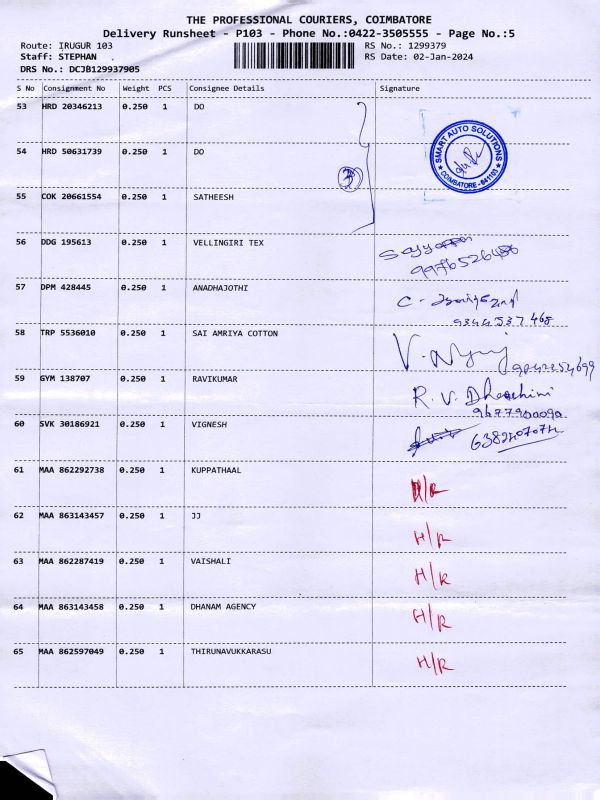 THE PROFESSIONAL COURIERS, COIMBATORE
Delivery Runsheet - P103 - Phone No.:0422-3505555 - Page No.:5
Route: IRUGUR 103 RS No.: 1299379
Staff: STEPHAN . RS Date: 02-Jan-2024
DRS No.: DCJB129937905
S No Consignment No Weight PCS Consignee Details Signature
53 HRD 20346213 0.250 1 DO
54 HRD 50631739 0.250 1 DO
3
SMART AUTO SOLUTIONS
★ COIMBATORE - 641103 ★
55 COK 20661554 0.250 1 SATHEESH
56 DDG 195613 0.250 1 VELLINGIRI TEX
9976526486
57 DPM 428445 0.250 1 ANADHAJOTHI
9344537468
58 TRP 5536010 0.250 1 SAI AMRIYA COTTON
59 GYM 138707 0.250 1 RAVIKUMAR
R. V. Dharshini
60 SVK 30186921 0.250 1 VIGNESH
61 MAA 862292738 0.250 1 KUPPATHAAL
H/R
62 MAA 863143457 0.250 1 JJ
H/R
63 MAA 862287419 0.250 1 VAISHALI
H/R
64 MAA 863143458 0.250 1 DHANAM AGENCY
H/R
65 MAA 862597049 0.250 1 THIRUNAVUKKARASU
H/R